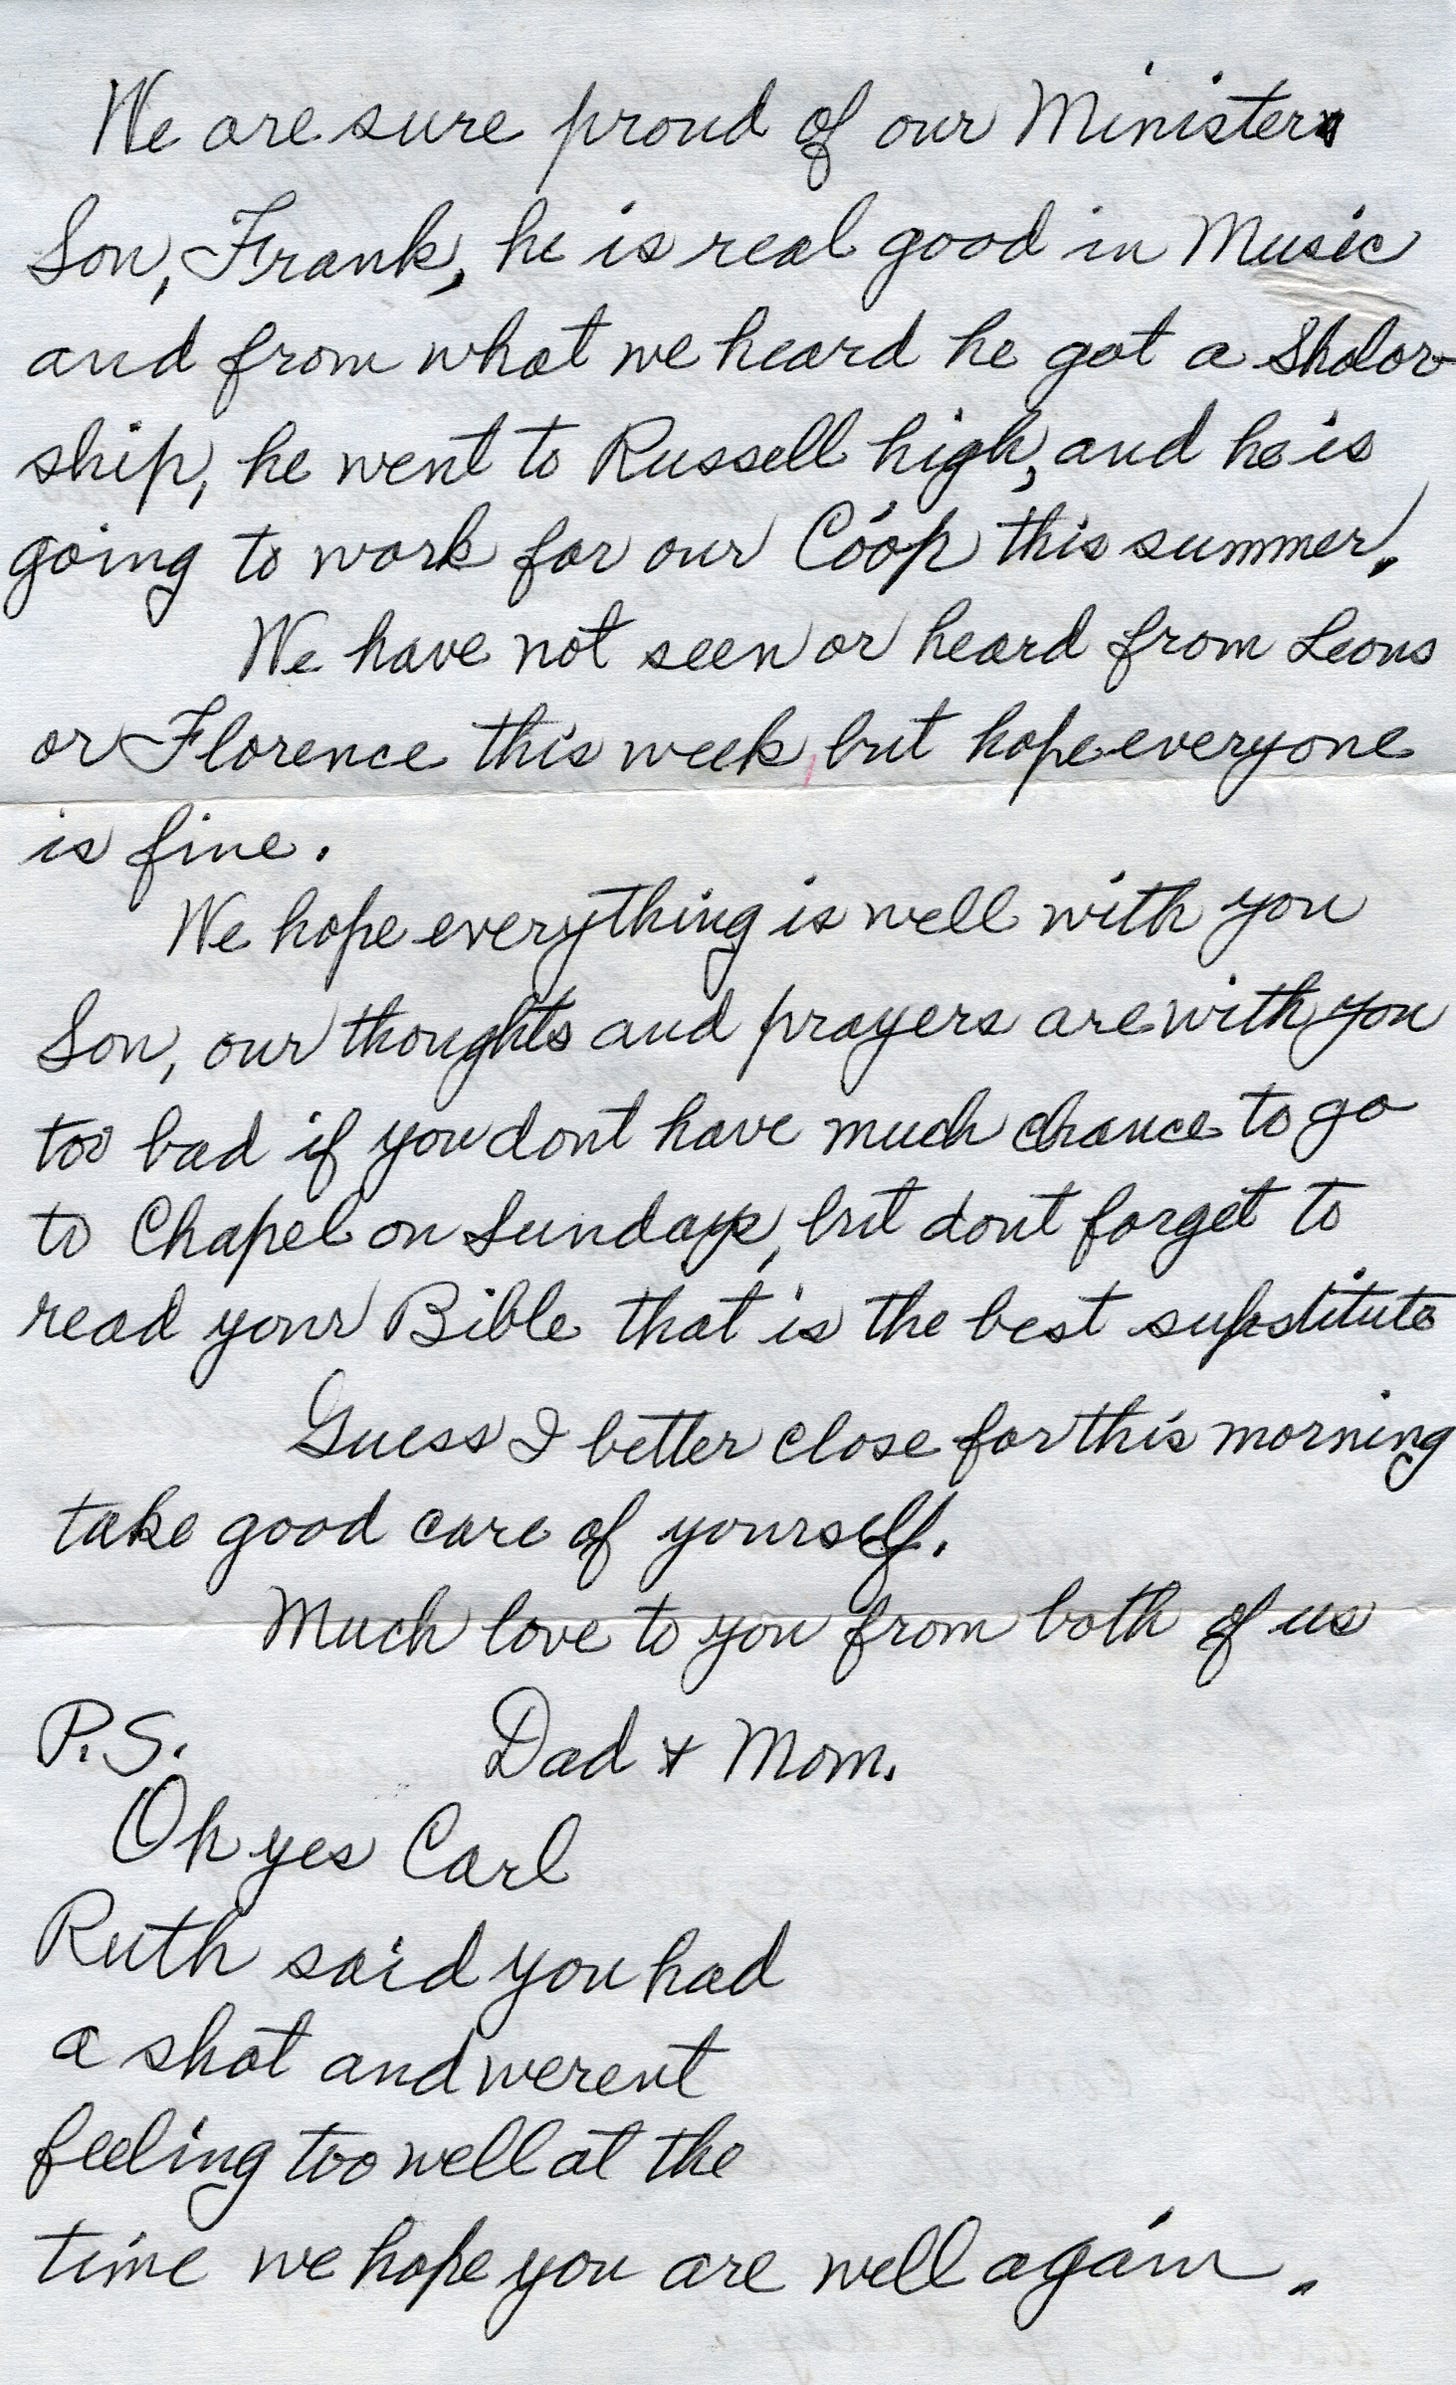 We are sure proud of our Minister
Son, Frank, he is real good in Music
and from what we heard he got a Sholor
ship, he went to Russell high, and he is
going to work for our Coop this summer.
We have not seen or heard from Leons
or Florence this week, but hope everyone
is fine.
We hope everything is well with you
Son, our thoughts and prayers are with you
too bad if you dont have much chance to go
to Chapel on Sunday, but dont forget to
read your Bible that is the best substitute
Guess I better close for this morning
take good care of yourself.
Much love to you from both of us
P.S. Dad + Mom.
Oh yes Carl
Ruth said you had
a shot and werent
feeling too well at the
time we hope you are well again.